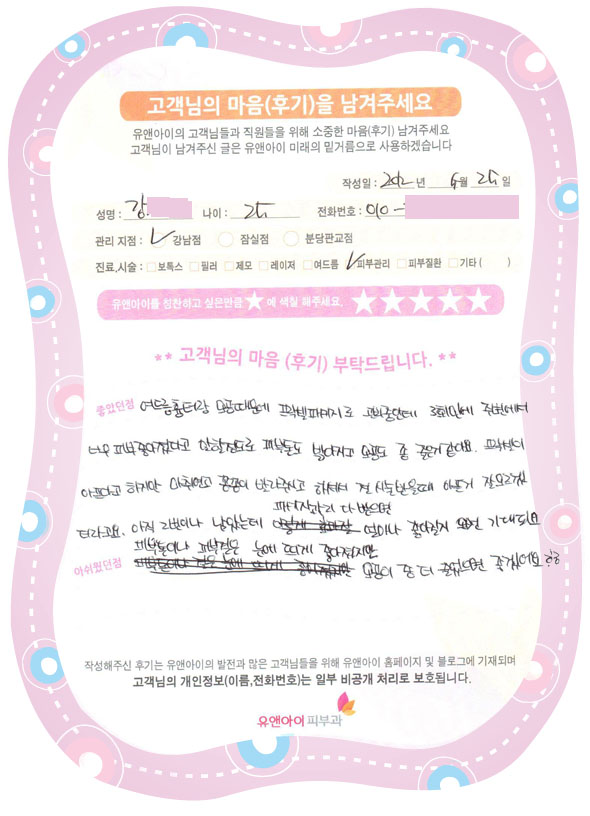 고객님의 마음(후기)을 남겨주세요
유앤아이의 고객님들과 직원들을 위해 소중한 마음(후기) 남겨주세요
고객님이 남겨주신 글은 유앤아이 미래의 밑거름으로 사용하겠습니다
작성일 : 2012 년 6월 25 일
성명 : 강 나이 : 25 전화번호 : 010 -
관리 지점 : 강남점 잠실점 분당판교점
진료,시술 : 보톡스 필러 제모 레이저 여드름 피부관리 피부질환 기타 ( )
유앤아이를 칭찬하고 싶은만큼 ★ 에 색칠 해주세요. ★★★★★
** 고객님의 마음 (후기) 부탁드립니다. **
좋았던점 여드름흉터랑 모공때문에 프락셀패키지로 관리중인데 3회만에 주변에서
너무 피부좋아졌다고 말할정도로 피부톤도 밝아지고 모공도 좀 줄은거같아요. 프락셀이
아프다고 하지만 마취연고 꼼꼼히 발라주시고 하셔서 전 시술받을때 아픈거 잘모르겠
더라구요. 아직 2번이나 남았는데 패키지관리 다 받으면 얼마나 좋아질지 완전 기대되요
아쉬웠던점 피부톤이나 피부결은 눈에 띄게 좋아졌지만 모공이 좀 더 줄었으면 좋겠어요 ㅎㅎ
작성해주신 후기는 유앤아이의 발전과 많은 고객님들을 위해 유앤아이 홈페이지 및 블로그에 기재되며
고객님의 개인정보(이름,전화번호)는 일부 비공개 처리로 보호됩니다.
유앤아이 피부과